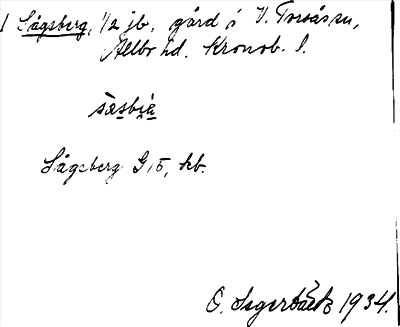 1 Sågsberg, 1/2 jb, gård i V. Torsås sn,
Allbo hd. Kronob. l.
Sågsberg G 15, kb.
O. Segerbäck 1934.